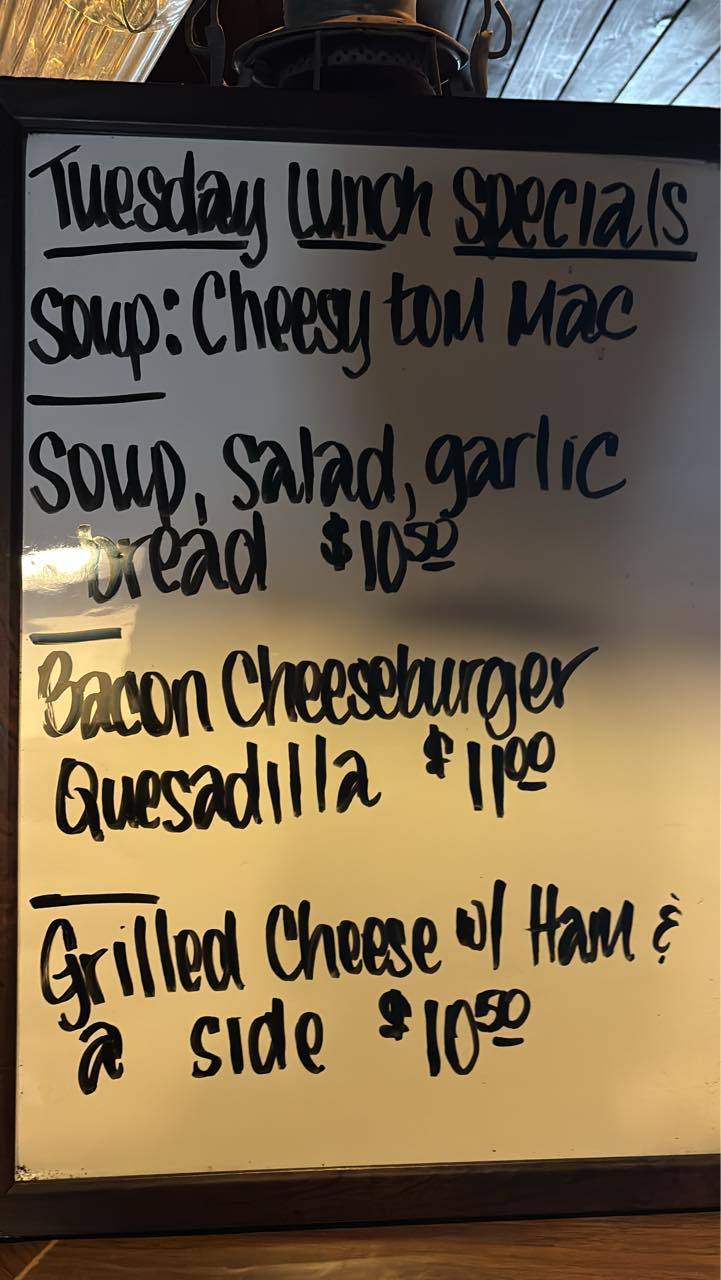 Tuesday Lunch Specials
Soup: Cheesy tom Mac
Soup, salad, garlic
bread $10.50
Bacon Cheeseburger
Quesadilla $11.00
Grilled Cheese w/ Ham &
a side $10.50